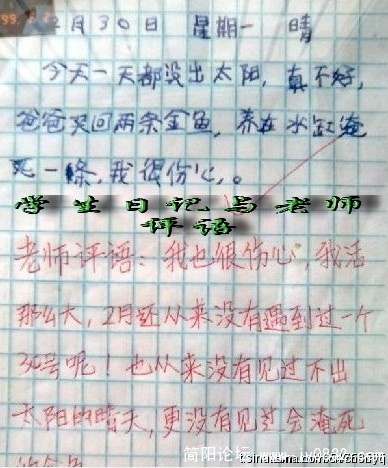 2月30日 星期一 晴
今天一天都没出太阳，真不好，
爸爸买回两条金鱼，养在水缸淹
死一條，我很伤心。
学生日记与老师
评语
老师评语：我也很伤心，我活
那么大，2月还从来没有遇到过一个
30号呢！也从来没有见过不出
太阳的晴天，更没有见过会淹死
的金鱼
简阳论坛